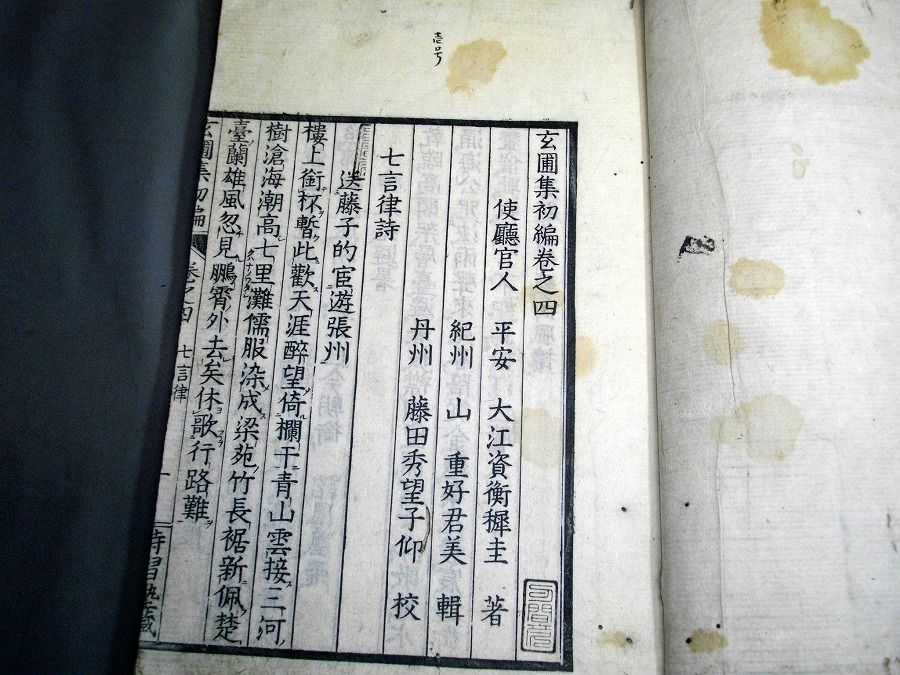 壱号
玄圃集初編卷之四
使廳官人 平安 大江資衡穉圭 著
紀州 山 重好君美 輯
丹州 藤田秀望子仰 校
七言律詩
送藤子的宦遊張州
樓上銜杯暫此歡天涯醉望倚欄干青山雲接三河
樹滄海潮高七里灘儒服染成梁苑竹長裾新佩楚
臺蘭雄風忽見鵬霄外去矣休歌行路難
玄圃集初編 卷之四 七言律 一 時習塾藏